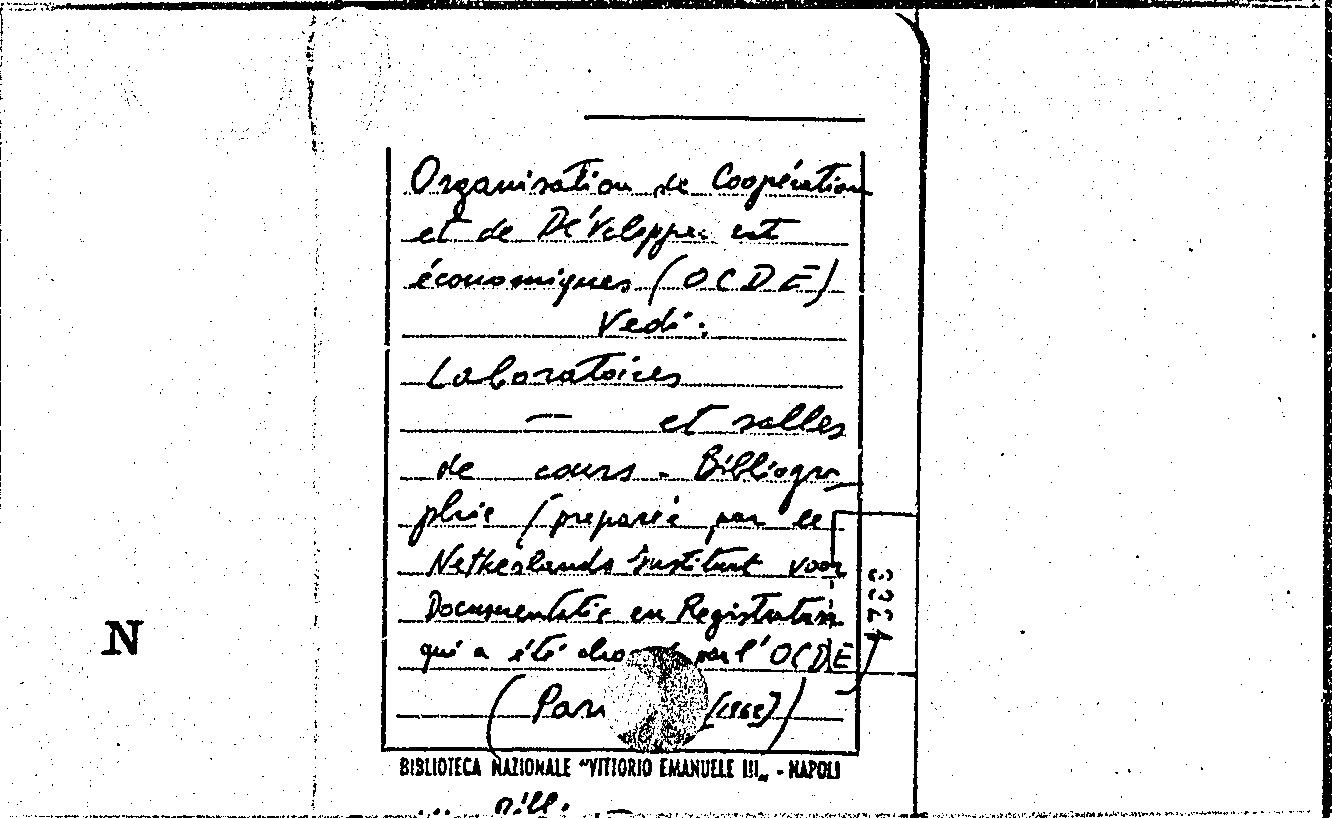 Organisation de Coopération
et de Développement
économiques (OCDE)
Vedi:
Laboratoires
— et salles
de cours. Bibliogra
phie (preparée par le
Netherlands Instituut voor
Documentatie en Registratuur
qui a été par l'OCDE
(1969))
3224
N
BIBLIOTECA NAZIONALE "VITTORIO EMANUELE III„ - NAPOLI